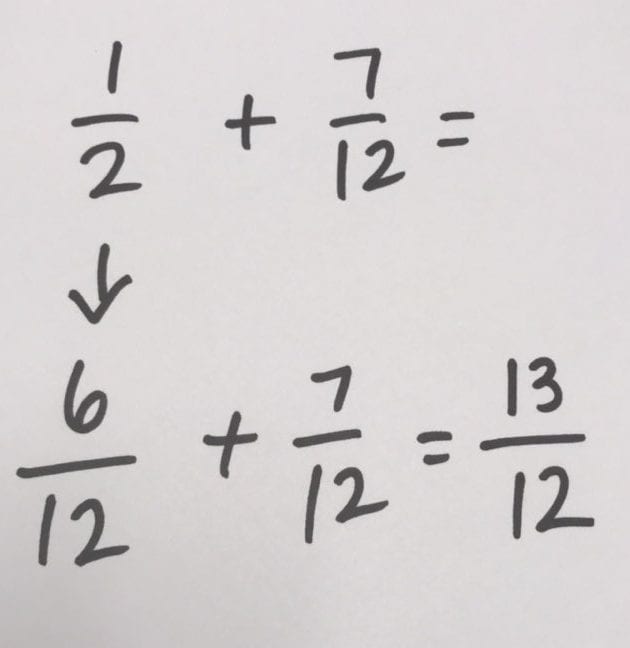 1/2 + 7/12 =
↓
6/12 + 7/12 = 13/12